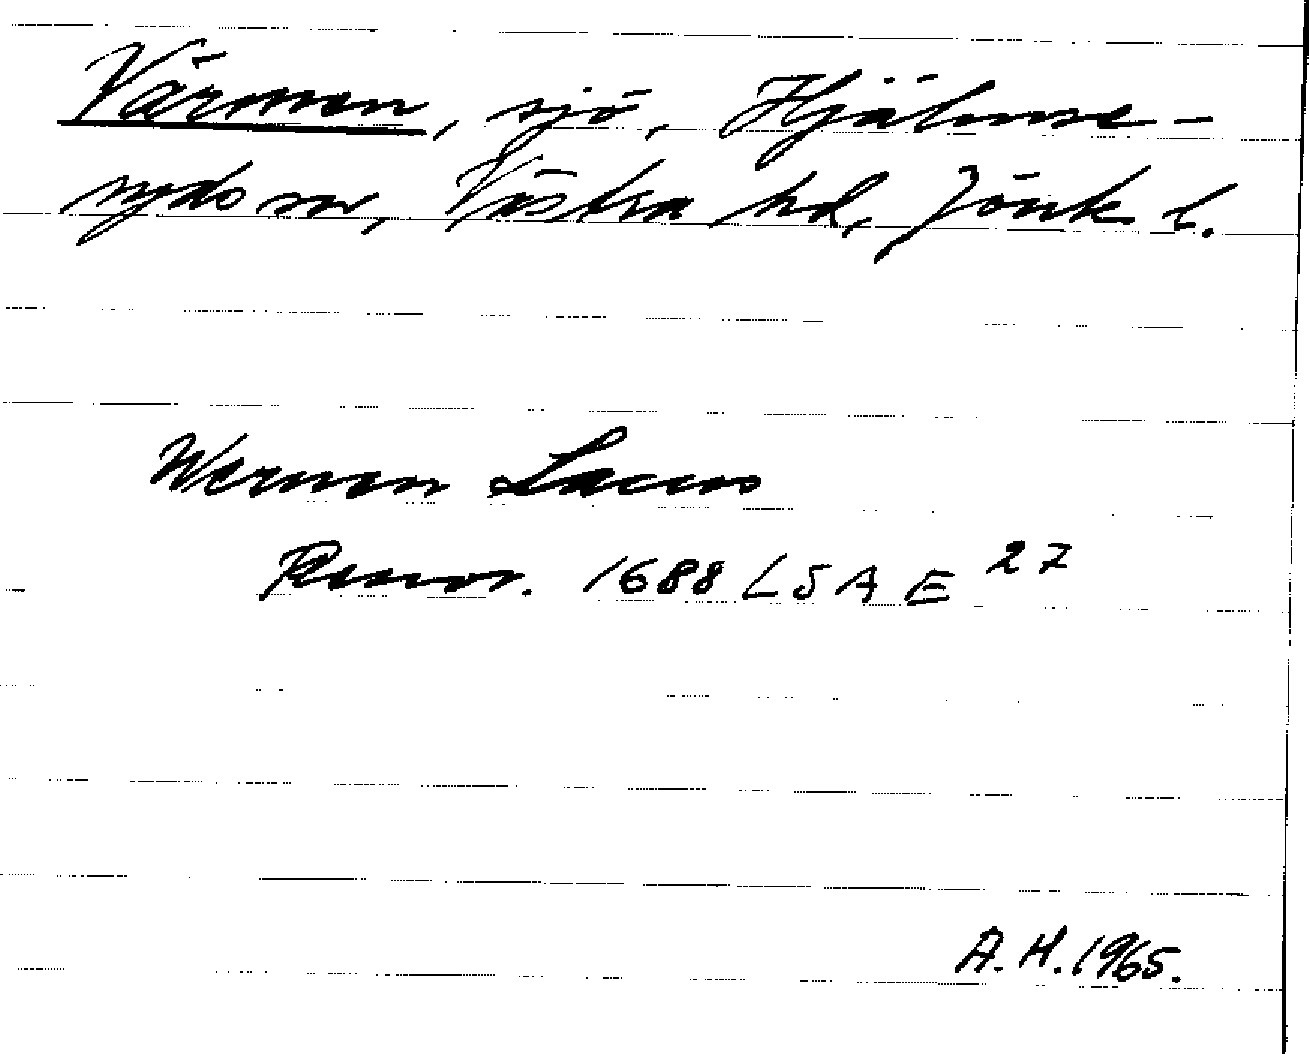 Värmen, sjö, Hjälmse-
ryds sn, Västra hd, Jönk l.
Wermen Lacus
Renov. 1688 LSA E 27
A.H.1965.